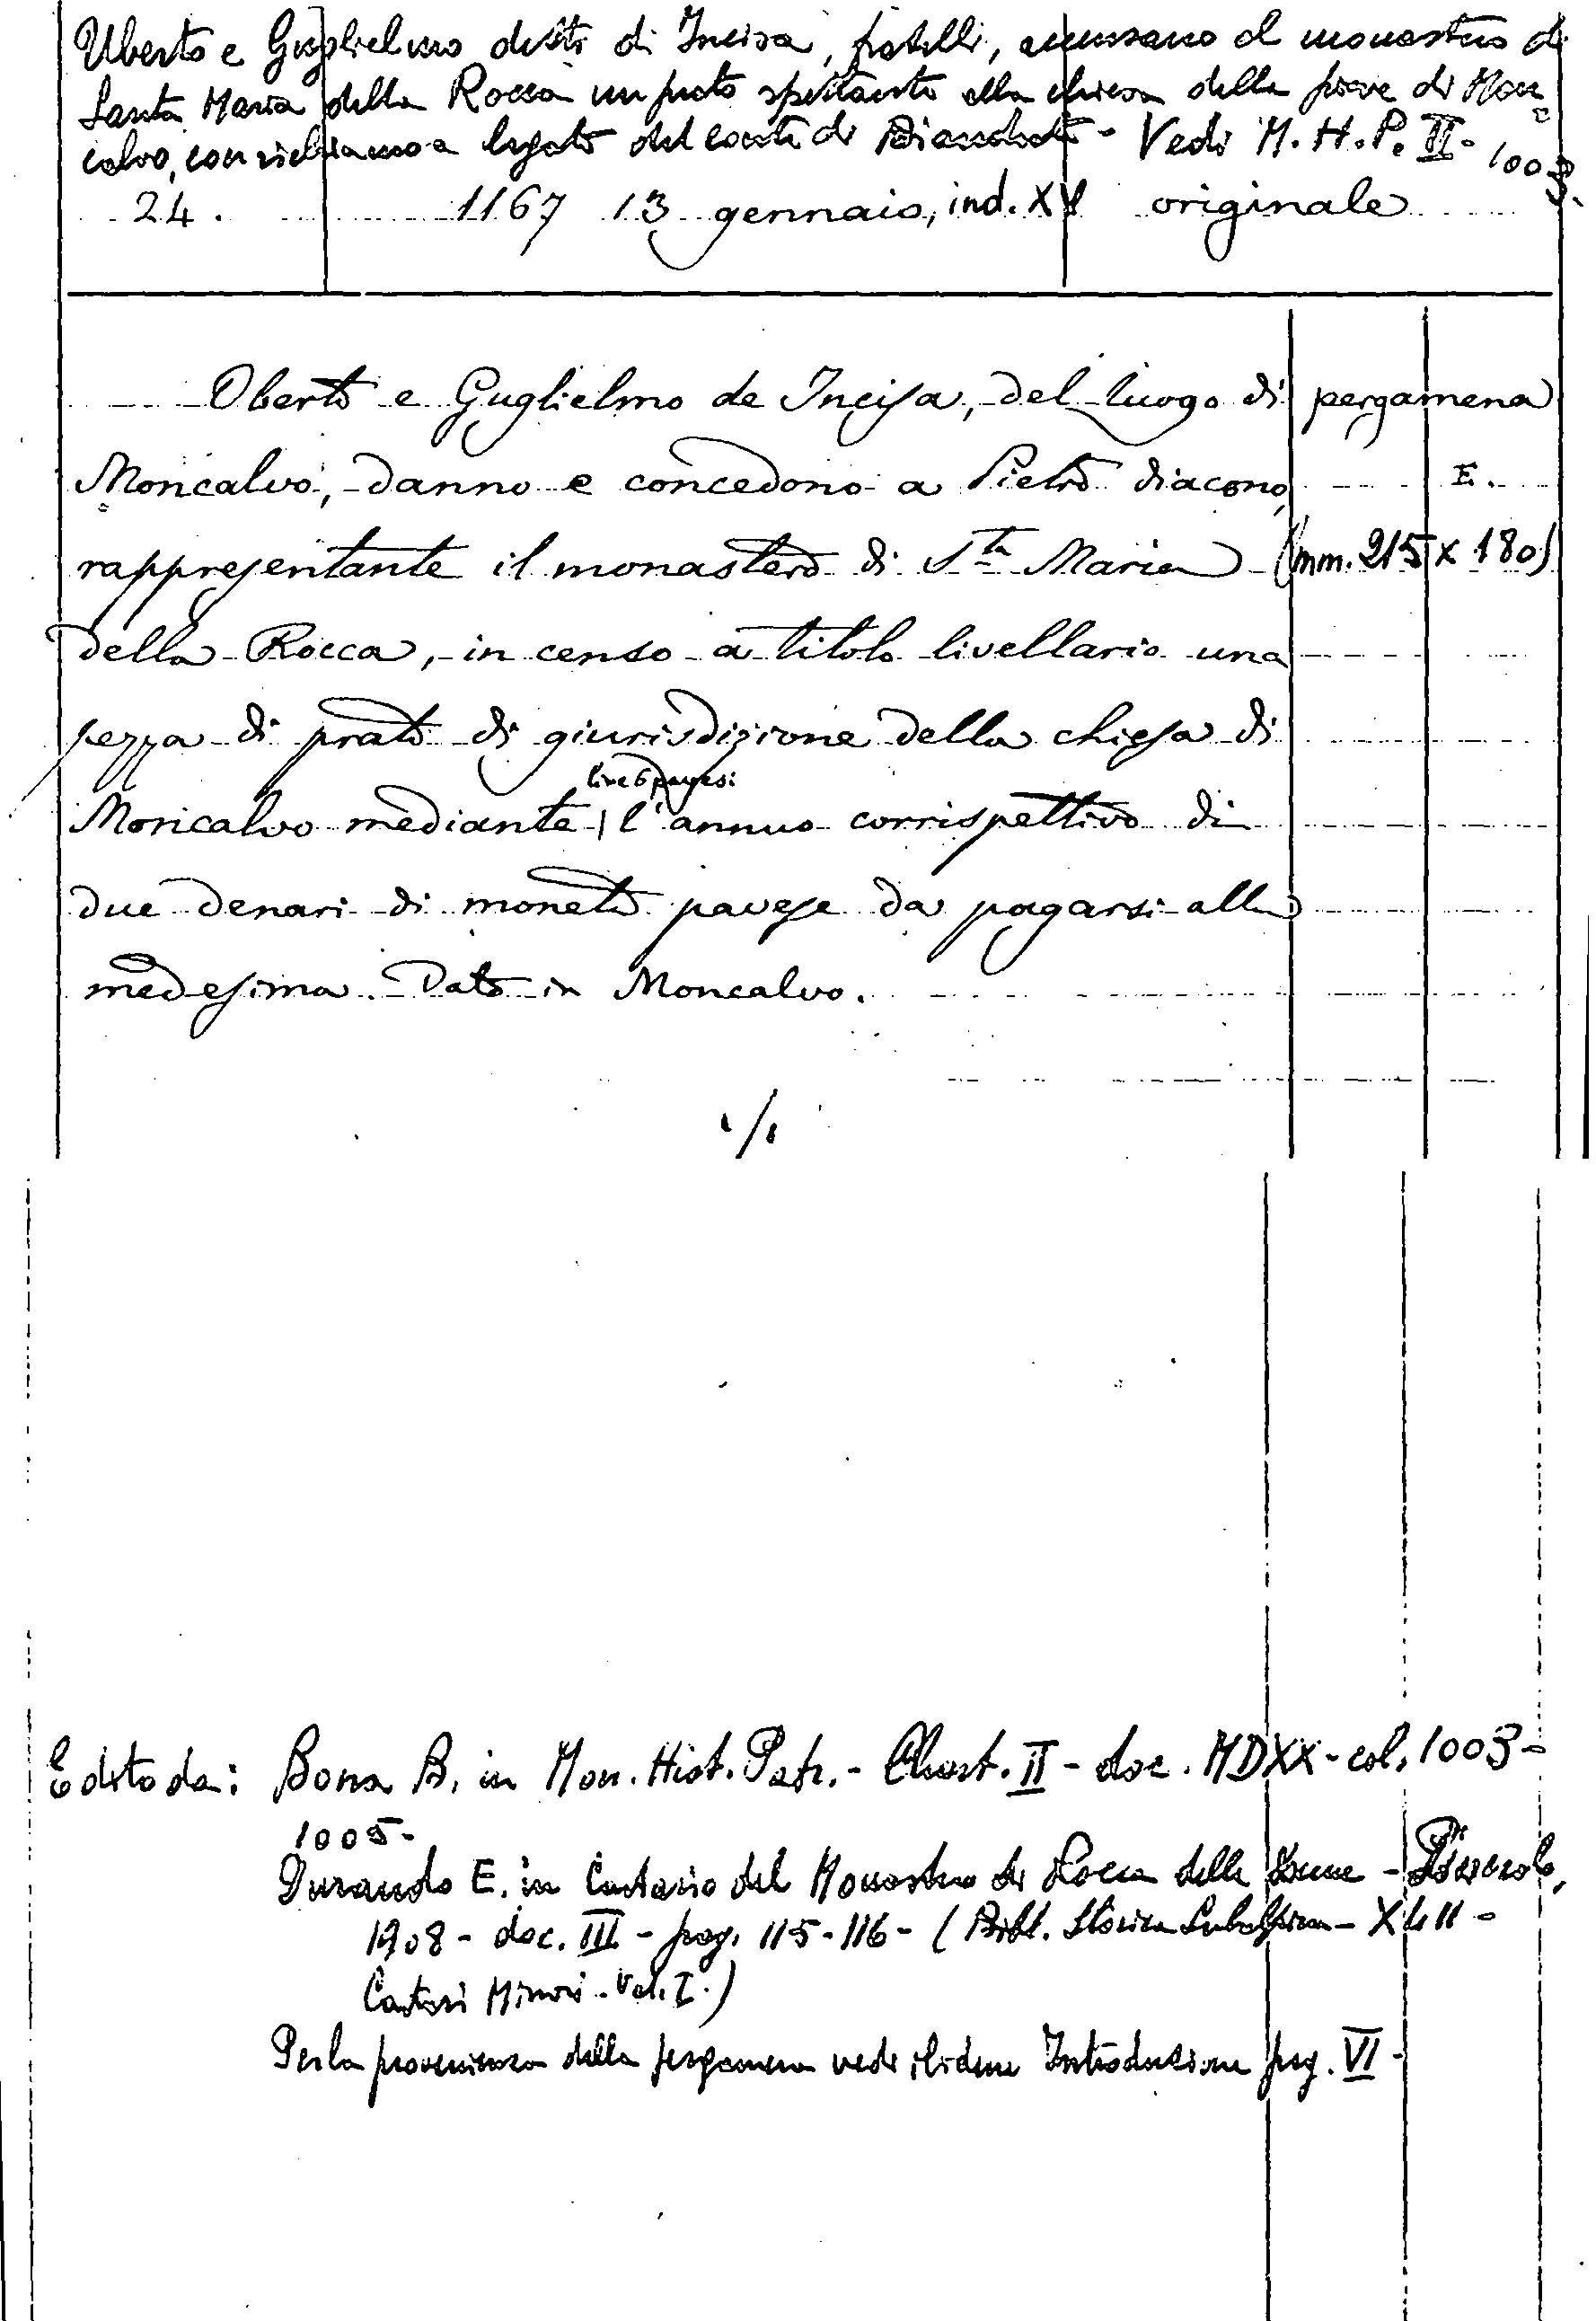 Uberto e Guglielmo detti di Incisa, fratelli, accensano al monastero di
Santa Maria della Rocca un prato spettante alla chiesa della pieve di Mon=
calvo, con richiamo a legato del conte di Biandrate - Vedi M.H.P. II - 1003.
24. 1167 13 gennaio, ind. XV originale
Oberto e Guglielmo de Incisa, del luogo di pergamena
Moncalvo, danno e concedono a Pietro diacono, E.
rappresentante il monastero di S.ta Maria (mm. 215 x 180)
della Rocca, in censo a titolo livellario una
pezza di prato di giurisdizione della chiesa di
lire 6 pavesi
Moncalvo mediante l'annuo corrispettivo di
due denari di moneta pavese da pagarsi alla
medesima. Dato in Moncalvo.
./.
Edito da: Bona B. in Mon. Hist. Patr. - Chart. II - doc. MDXX - col. 1003 -
1005 -
Durando E. in Cartario del Monastero di Rocca delle Donne - Pinerolo,
1908 - doc. III - pag. 115-116 - (Bibl. Storica Subalpina - XLII -
Cartari Minori - Vol. I.)
Per la provenienza della pergamena vedi ibidem Introduzione pag. VI -